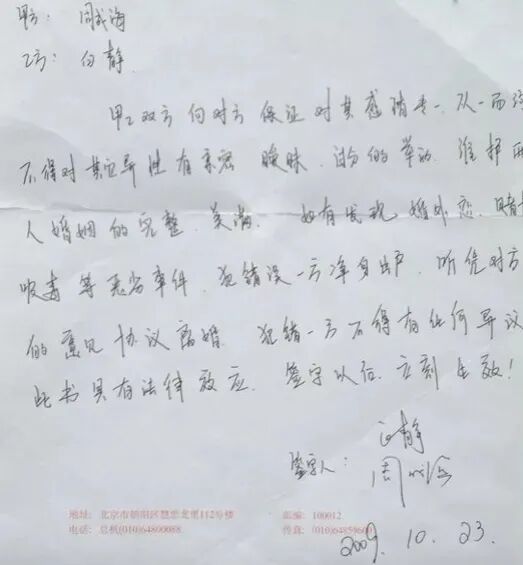 甲方: 周成海
乙方: 白静
甲乙双方向对方保证对其感情专一.从一而终
不得对其它异性有亲密 暧昧.过分的举动.维护两
人婚姻的完整.美满.如有发现婚外恋.赌博
吸毒等恶劣事件.犯错误一方净身出户.听凭对方
的意见协议离婚.犯错一方不得有任何异议
此书具有法律效应.签字以后.立刻生效!
白静
签字人: 周成海
地址: 北京市朝阳区慧忠北里112号楼 邮编: 100012
电话: 总机(010)64800088 传真: (010)64859600
2009. 10. 23.